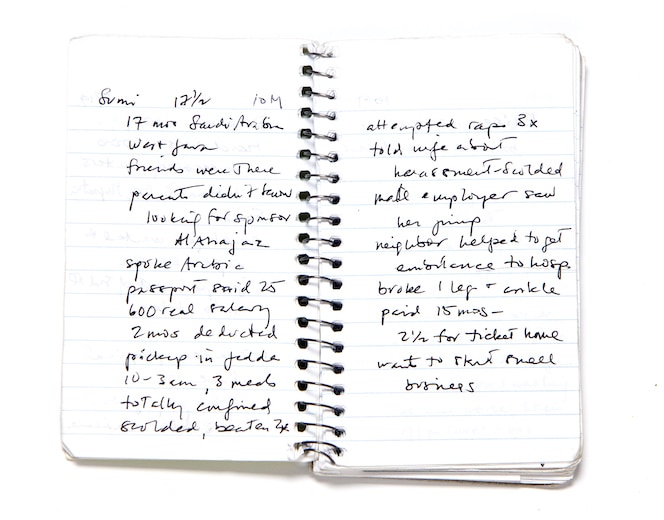 Sumi 17½ 10M
17 mos Saudi Arabia
West Java
friends were there
parents didn't know
looking for sponsor
spoke Arabic
passport said 25
600 real salary
2 mos deducted
pickup in Jedda
10-3 am, 3 meals
totally confined
scolded, beaten 2x
attempted rape 3x
told wife about
harassment-scolded
male employer saw
her jump
neighbor helped to get
ambulance to hosp.
broke 1 leg + ankle
paid 15 mos –
2½ for ticket home
want to start small
business